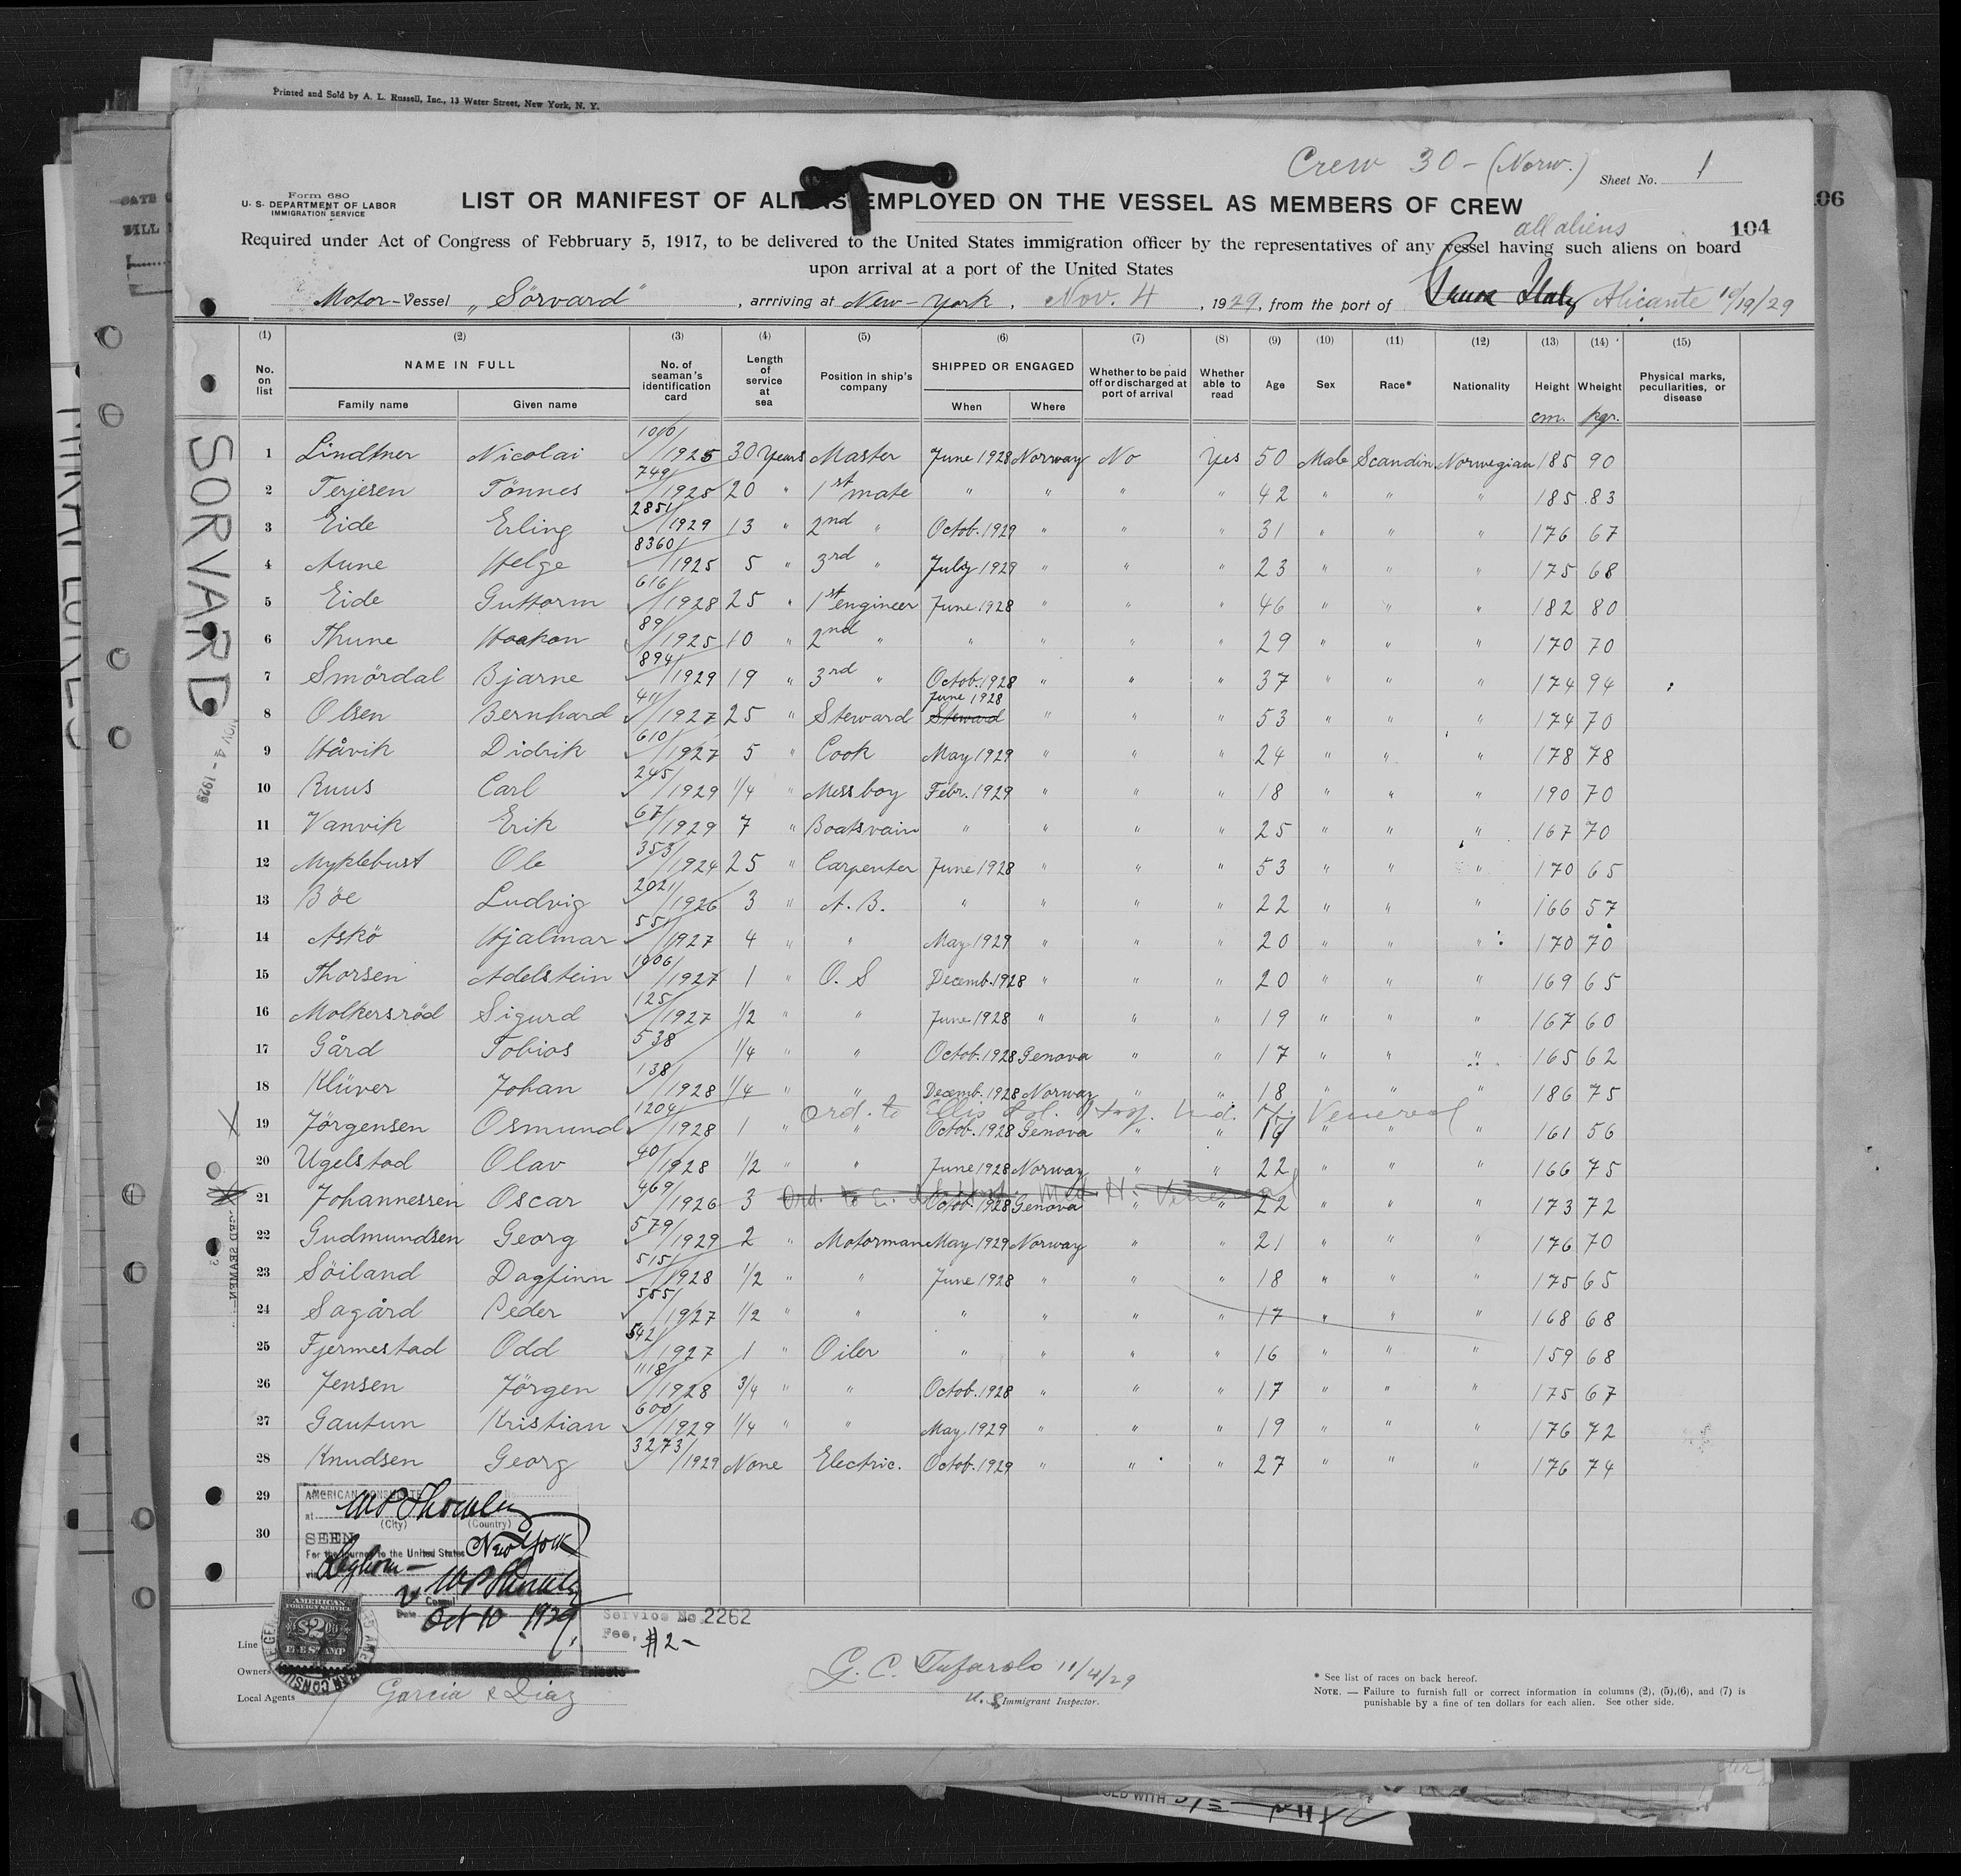 Printed and Sold by A. L. Russell, Inc., 13 Water Street, New York, N. Y.
Crew 30 - (Norw.) Sheet No. 1
Form 680
U. S. DEPARTMENT OF LABOR
IMMIGRATION SERVICE
LIST OR MANIFEST OF ALIENS EMPLOYED ON THE VESSEL AS MEMBERS OF CREW
all aliens 104 06
Required under Act of Congress of Febbruary 5, 1917, to be delivered to the United States immigration officer by the representatives of any vessel having such aliens on board
upon arrival at a port of the United States
Motor-Vessel „Sörvard" , arrriving at New-York, Nov. 4, 1929, from the port of Alicante 10/19/29
(1) (2) (3) (4) (5) (6) (7) (8) (9) (10) (11) (12) (13) (14) (15)
No. on list NAME IN FULL Family name Given name No. of seaman's identification card Length of service at sea Position in ship's company SHIPPED OR ENGAGED When Where Whether to be paid off or discharged at port of arrival Whether able to read Age Sex Race* Nationality Height Wheight Physical marks, peculiarities, or disease
cm. kgr.
1 Lindtner Nicolai 1010/1925 30 Years Master June 1928 Norway No Yes 50 Male Scandin. Norwegian 185 90
2 Terjesen Tönnes 749/1925 20 " 1st mate " " " " 42 " " " 185 83
3 Eide Erling 2851/1929 13 " 2nd " Octob. 1929 " " " 31 " " " 176 67
4 Aune Helge 8360/1925 5 " 3rd " July 1929 " " " 23 " " " 175 68
5 Eide Guttorm 616/1928 25 " 1st engineer June 1928 " " " 46 " " " 182 80
6 Thune Haakon 89/1925 10 " 2nd " " " " " 29 " " " 170 70
7 Smördal Bjarne 894/1929 19 " 3rd " Octob. 1928 " " " 37 " " " 174 94
8 Olsen Bernhard 411/1927 25 " Steward June 1928 Steward " " " 53 " " " 174 70
9 Håvik Didrik 610/1927 5 " Cook May 1929 " " " 24 " " " 178 78
10 Ruus Carl 245/1929 1/4 " Messboy Febr. 1929 " " " 18 " " " 190 70
11 Vanvik Erik 67/1929 7 " Boatsvain " " " " 25 " " " 167 70
12 Myklebust Ole 353/1924 25 " Carpenter June 1928 " " " 53 " " " 170 65
13 Böe Ludvig 2021/1926 3 " A. B. " " " " 22 " " " 166 57
14 Askö Hjalmar 551/1927 4 " " May 1929 " " " 20 " " " 170 70
15 Thorsen Adelstein 1006/1927 1 " O. S Decemb. 1928 " " " 20 " " " 169 65
16 Molkersröd Sigurd 125/1927 1/2 " " June 1928 " " " 19 " " " 167 60
17 Gård Tobias 538 1/4 " " Octob. 1928 Genova " " 17 " " " 165 62
18 Klüver Johan 138/1928 1/4 " Decemb. 1928 Norway " " 18 " " " 186 75
ord. to Ellis Isl. Hosp. Venereal
19 Jörgensen Osmund 1204/1928 1 " " Octob. 1928 Genova " " 19 " " " 161 56
20 Ugelstad Olav 40/1928 1/2 " " June 1928 Norway " " 22 " " " 166 75
21 Johannessen Oscar 469/1926 3 Octob. 1928 Genova " " 22 " " " 173 72
22 Gudmundsen Georg 579/1929 2 " Motorman May 1929 Norway " " 21 " " " 176 70
23 Söiland Dagfinn 515/1928 1/2 " " June 1928 " " " 18 " " " 175 65
24 Sagård Peder 555/1927 1/2 " " " " " " 17 " " " 168 68
25 Fjermestad Odd 542/1927 1 " Oiler " " " " 16 " " " 159 68
26 Jensen Jörgen 1118/1928 3/4 " " Octob. 1928 " " " 17 " " " 175 67
27 Gautun Kristian 600/1929 1/4 " " May 1929 " " " 19 " " " 176 72
28 Knudsen Georg 3273/1929 None Electric. Octob. 1929 " " " 27 " " " 176 74
29
30
SORVARD
NOV 4 - 1929
AMERICAN CONSULATE
at
(City) (Country)
SEEN
For the journey to the United States New York
via Leghorn
Consul
Date Oct 10 1929
AMERICAN
FOREIGN SERVICE
$2.00
FEE STAMP
Service No. 2262
Fee, $2-
Line
Owners
Local Agents Garcia & Diaz
G. C. Tufarolo 11/4/29
U. S. Immigrant Inspector.
* See list of races on back hereof.
NOTE. — Failure to furnish full or correct information in columns (2), (5),(6), and (7) is
punishable by a fine of ten dollars for each alien. See other side.